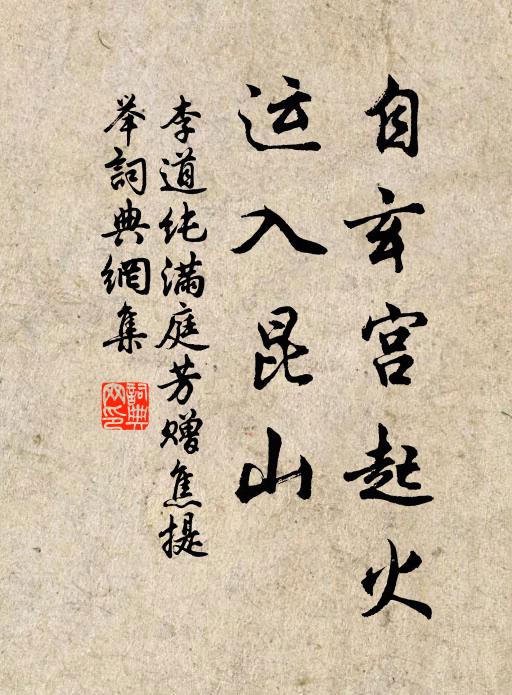 自玄宫起火
运入昆山
李道纯满庭芳赠焦提
举詞典網集
詞典
网印